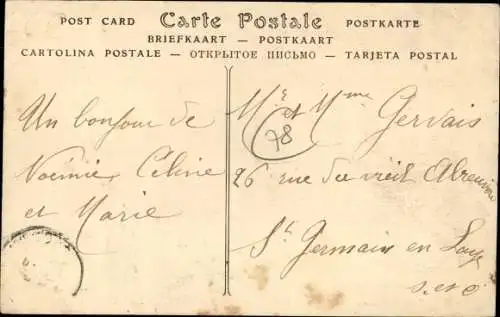 POST CARD Carte Postale POSTKARTE
BRIEFKAART — POSTKAART
CARTOLINA POSTALE — ОТКРЫТОЕ ПИСЬМО — TARJETA POSTAL
Un bonjour de
Noëmie, Céline
et Marie
Mr et Mme
Gervais
78
26 rue du vieil Abreuvoir
St Germain en Laye
S. et O.